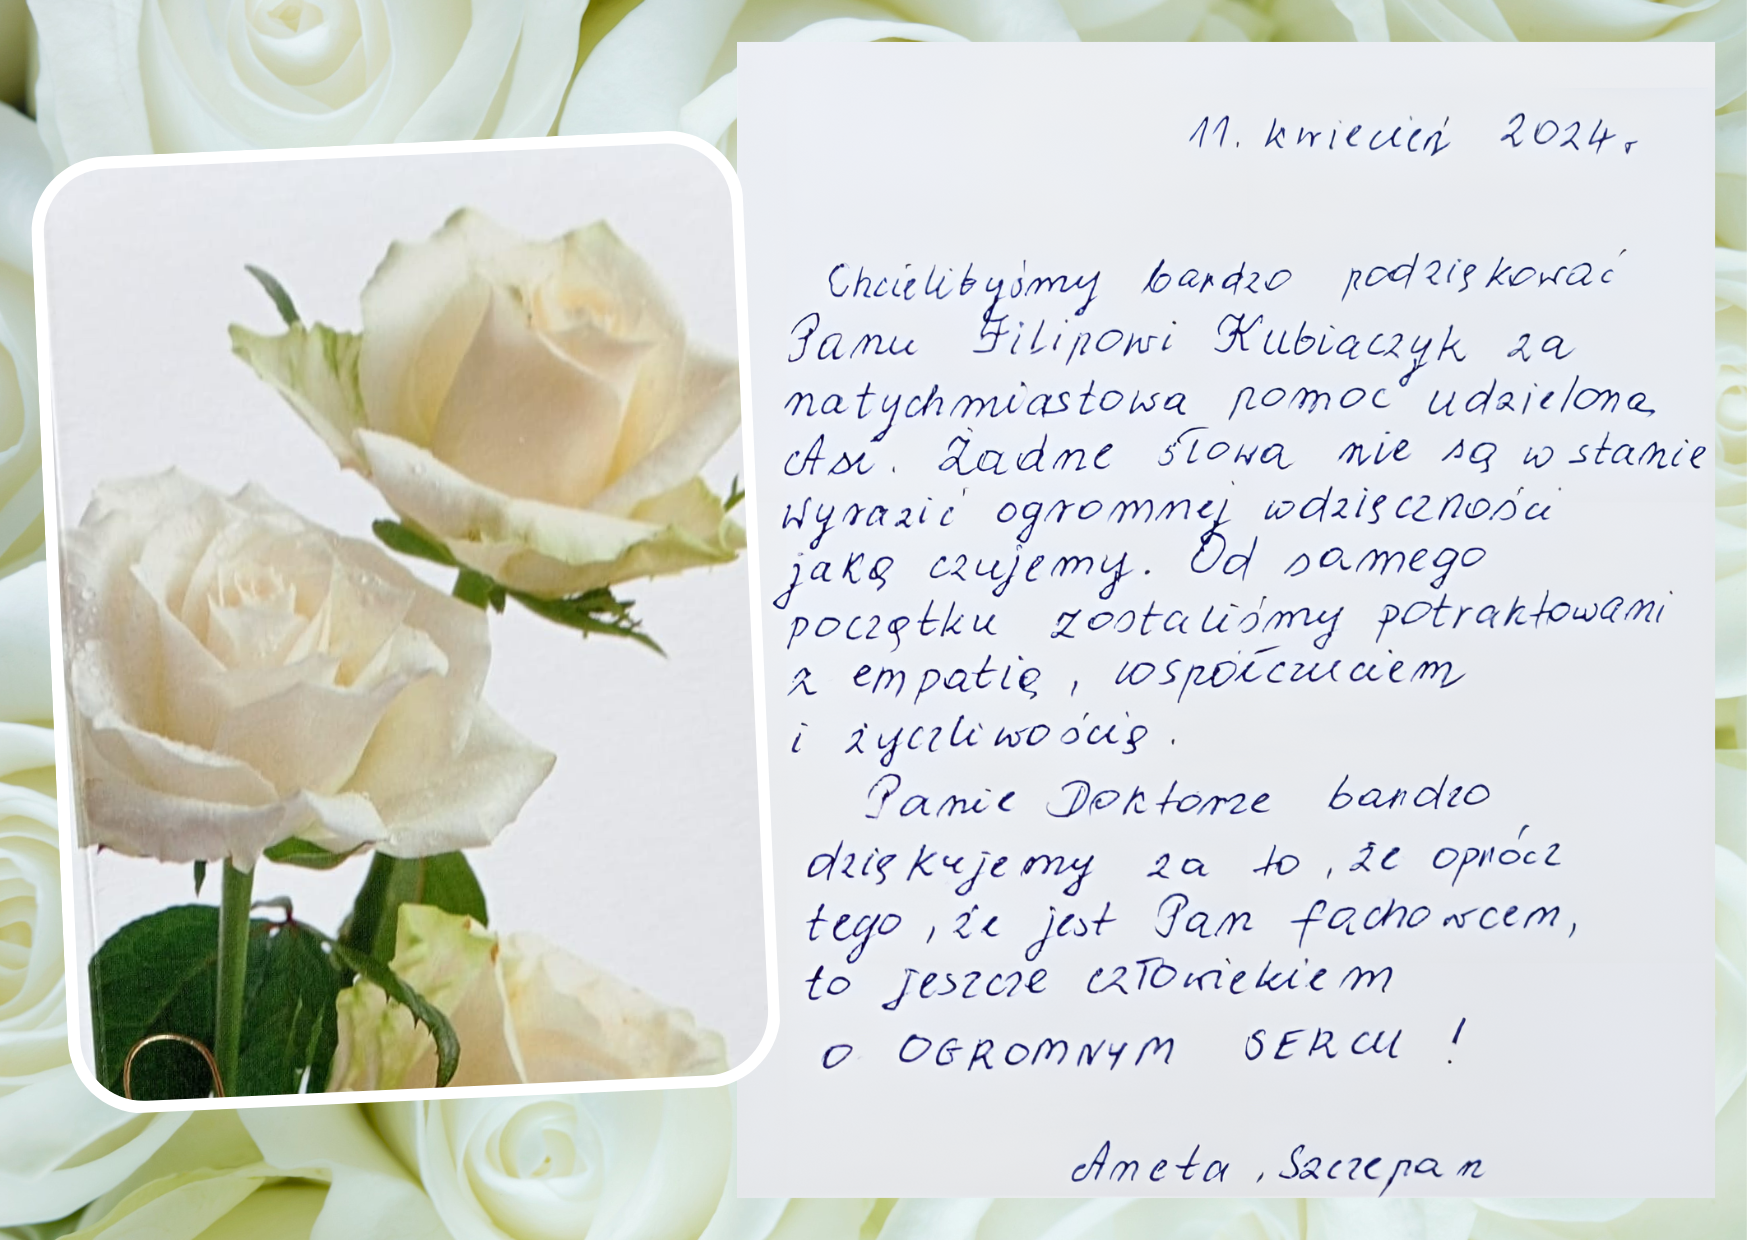 11. kwiecień 2024r
Chcielibyśmy bardzo podziękować
Panu Filipowi Kubiaczyk za
natychmiastową pomoc udzieloną
Asi. Żadne słowa nie są w stanie
wyrazić ogromnej wdzięczności
jaką czujemy. Od samego
początku zostaliśmy potraktowani
z empatią, współczuciem
i życzliwością.
Panie Doktorze bardzo
dziękujemy za to, że oprócz
tego, że jest Pan fachowcem,
to jeszcze człowiekiem
o OGROMNYM SERCU !
Aneta, Szczepan